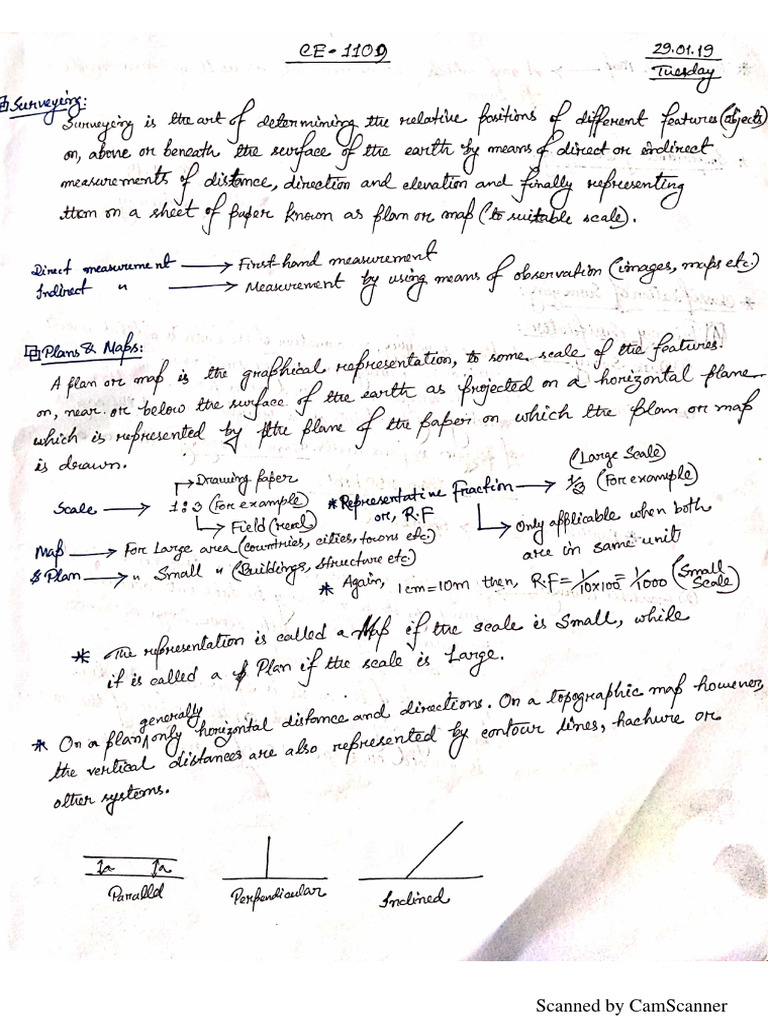 CE-1109
29.01.19
Tuesday
Surveying:
Surveying is the art of determining the relative positions of different features (objects)
on, above or beneath the surface of the earth by means of direct or indirect
measurements of distance, direction and elevation and finally representing
them on a sheet of paper known as plan or map (to suitable scale).
Direct measurement → First-hand measurement
Indirect " → Measurement by using means of observation (images, maps etc.)
Plans & Maps:
A plan or map is the graphical representation, to some scale of the features.
on, near or below the surface of the earth as projected on a horizontal plane
which is represented by the plane of the paper on which the plan or map
is drawn.
Drawing paper
(Large Scale)
Scale → 1:3 (For example)
* Representative Fraction → 1/3 (For example)
Field (real)
or, R.F
Only applicable when both
are in same unit
Map → For Large area (countries, cities, towns etc.)
Plan → " Small " (Buildings, structure etc)
* Again, 1cm=10m then, R.F=1/10×100=1/1000 (Small Scale)
* The representation is called a Map if the scale is Small, while
it is called a Plan if the scale is Large.
* On a plan, generally only horizontal distance and directions. On a topographic map however,
the vertical distances are also represented by contour lines, hachure or
other systems.
a a
Paralled Perpendicular Inclined
Scanned by CamScanner